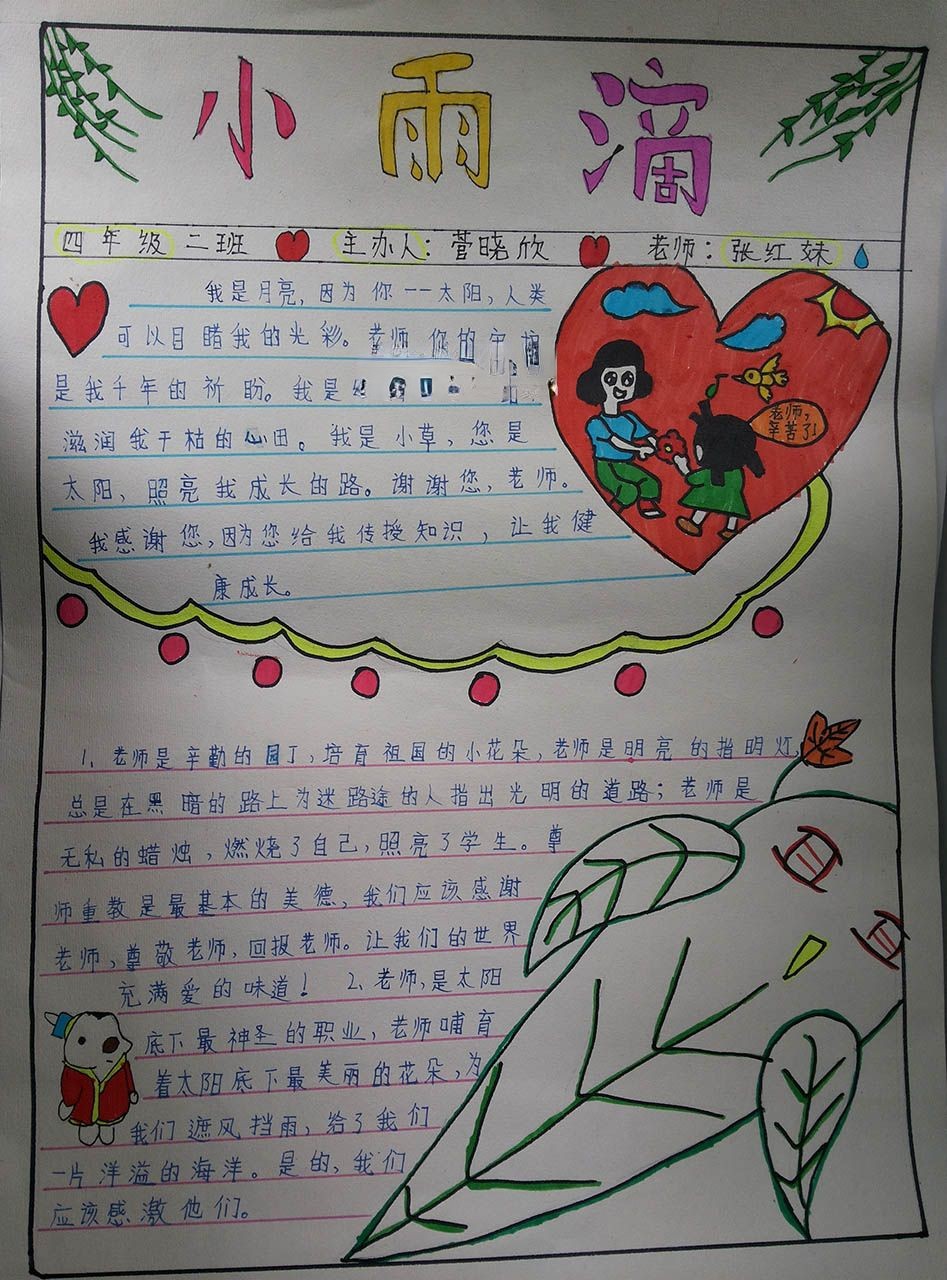 小雨滴
四年级 二班 主办人: 菅晓欣 老师: 张红妹
我是月亮,因为你——太阳,人类
可以目睹我的光彩。老师 你的
是我千年的祈盼。我是
滋润我干枯的心田。我是小草,您是
太阳,照亮我成长的路。谢谢您,老师。
我感谢您,因为您给我传授知识,让我健
康成长。
老师,
辛苦了!
1、老师是辛勤的园丁,培育祖国的小花朵,老师是明亮的指明灯,
总是在黑暗的路上为迷路途的人指出光明的道路;老师是
无私的蜡烛,燃烧了自己,照亮了学生。尊
师重教是最基本的美德,我们应该感谢
老师,尊敬老师,回报老师。让我们的世界
充满爱的味道! 2、老师,是太阳
底下最神圣的职业,老师哺育
着太阳底下最美丽的花朵,为
我们遮风挡雨,给了我们
一片洋溢的海洋。是的,我们
应该感激他们。